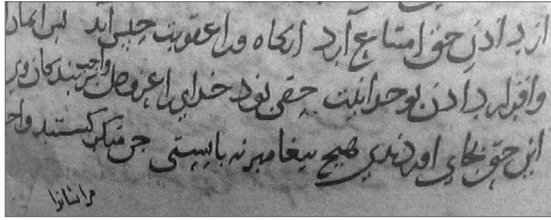 از دادن حق امتناع آرد انگاه ورا عقوبت حبس آید پس ایمان
واقرار دادن بوحدانیت حقی بود خدایرا عز وجل واجب بر بندکان وی
این حق بجای اوردندی هیچ پیغامبر نه بایستی جن منکر کشتند واجب
مر ایشانرا